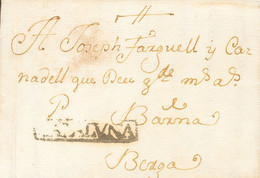 A Joseph Farguell y Car
nadell que Deu g.de m.s a.s
P.
Barna
Berga